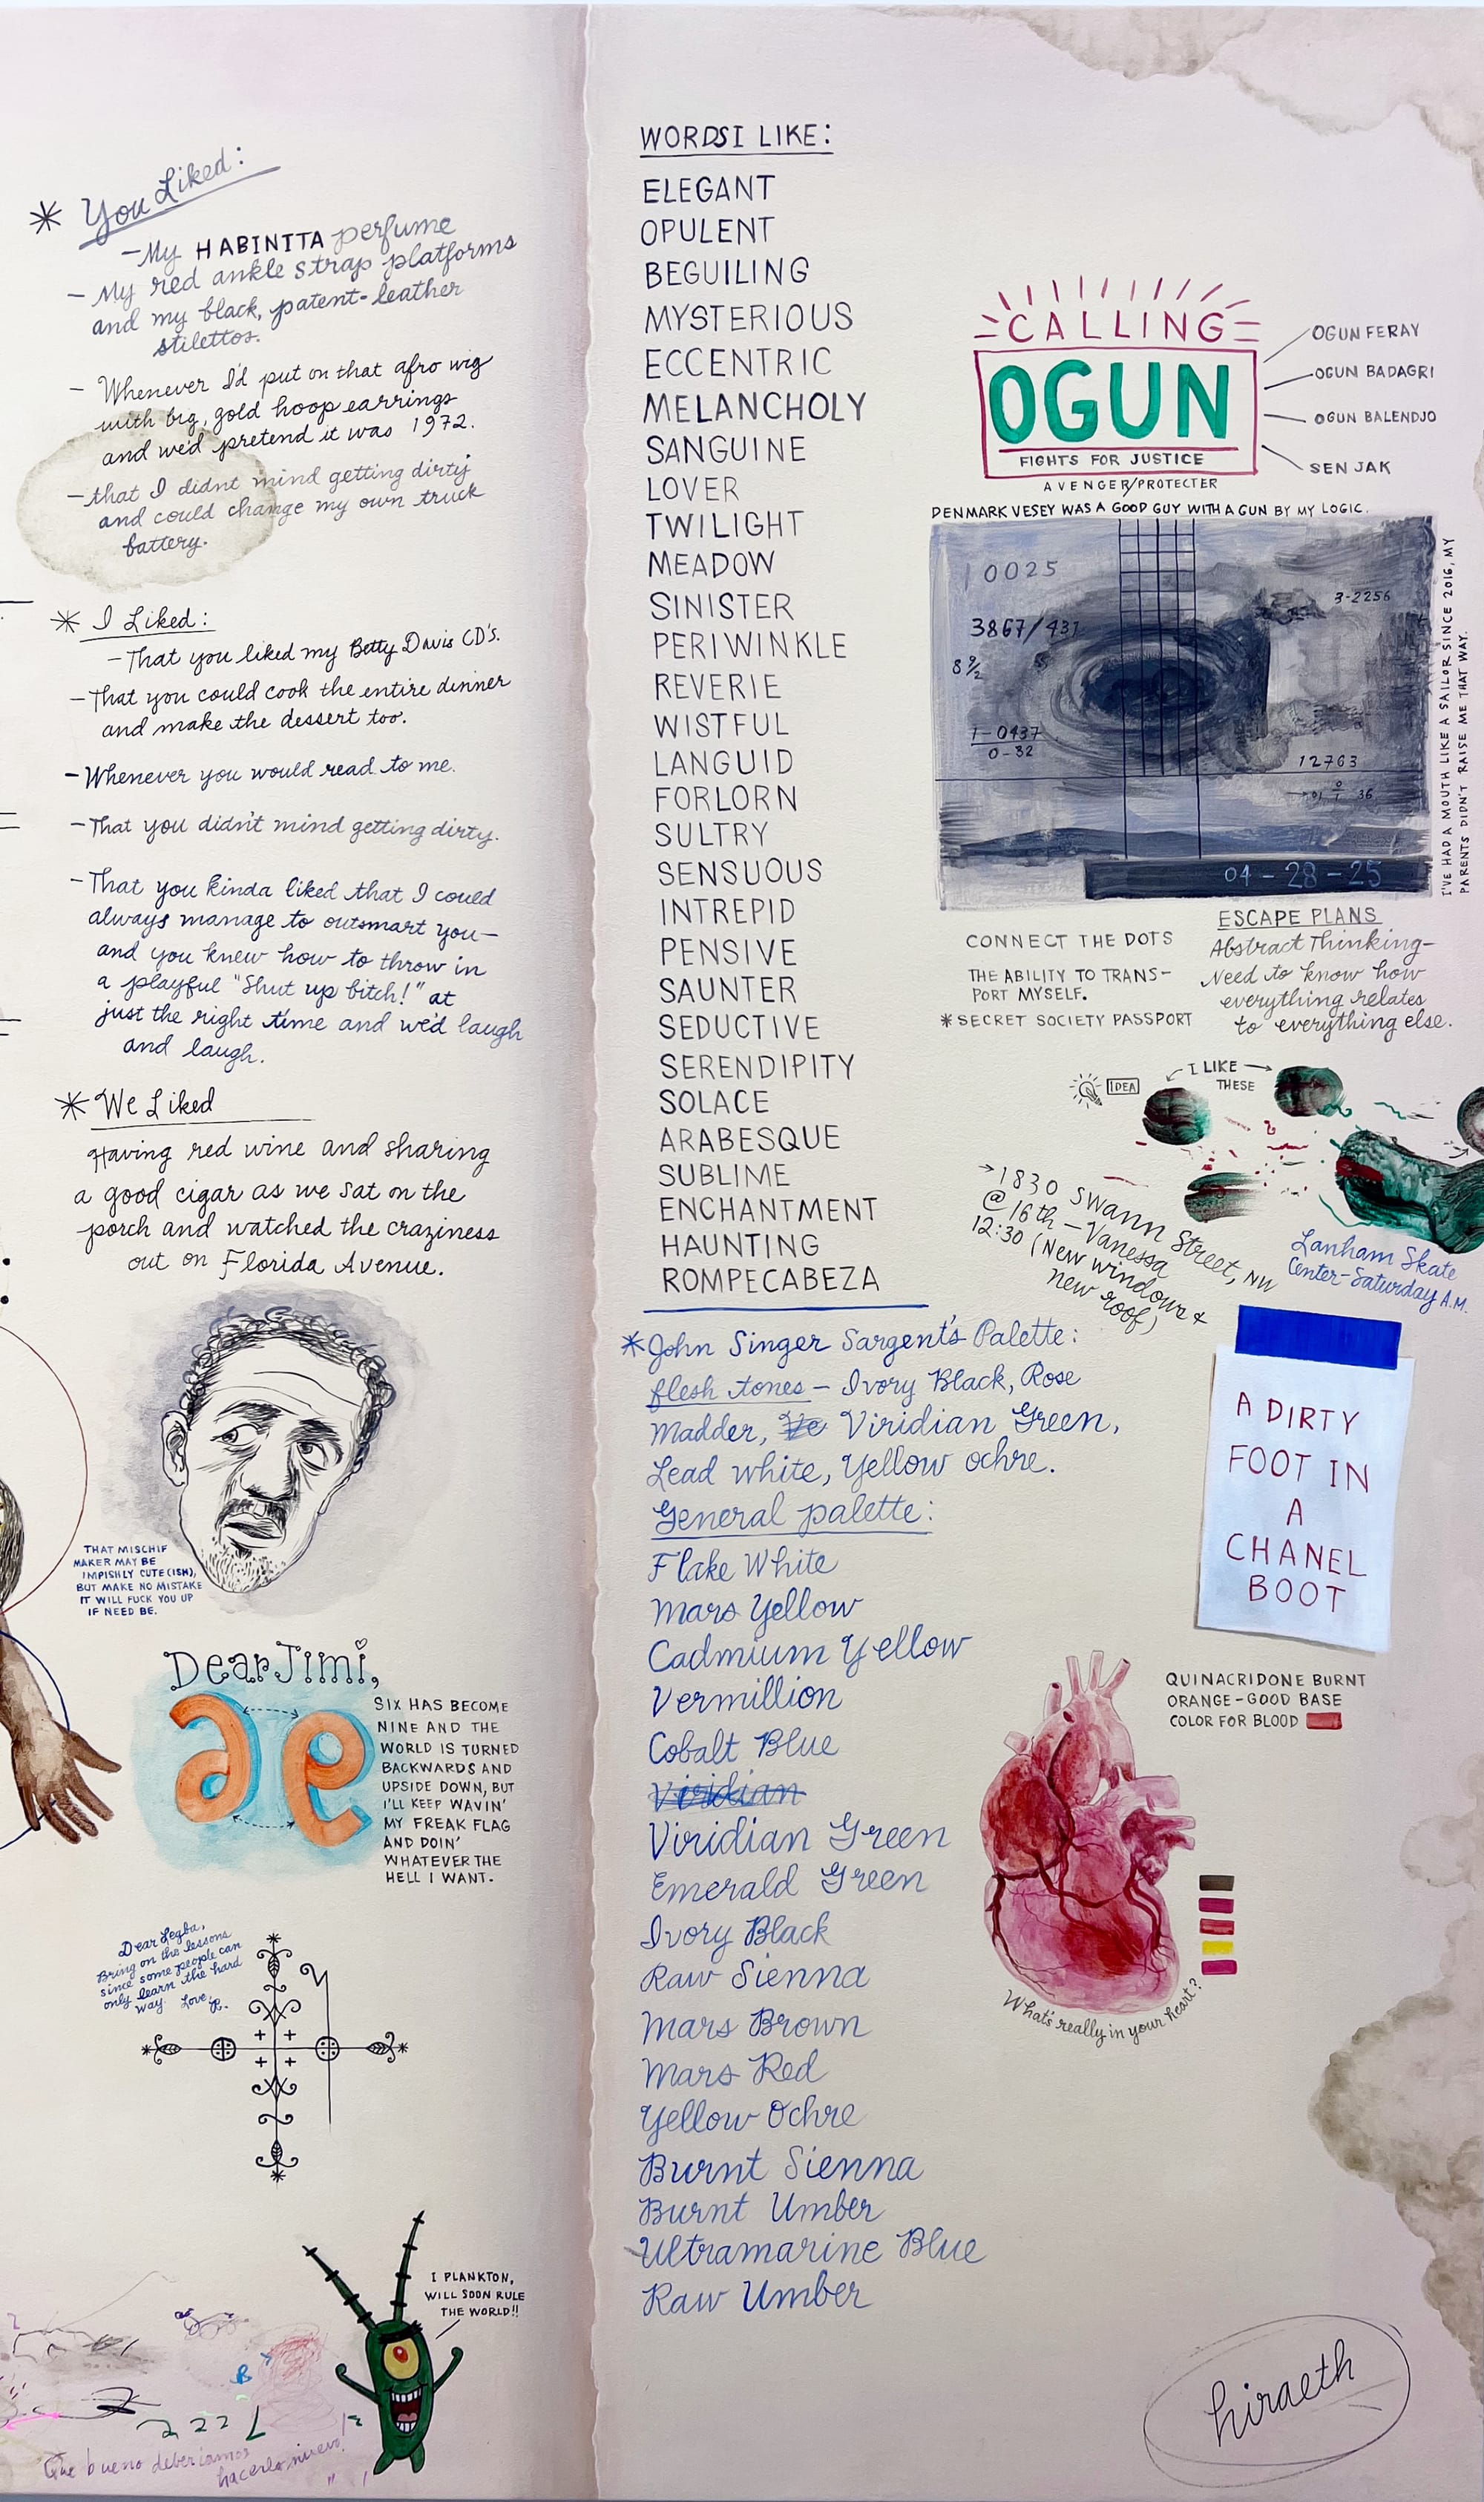 * You Liked:
-My HABINITA perfume
- My red ankle strap platforms
and my black, patent-leather
stilettos.
- Whenever I'd put on that afro wig
with big, gold hoop earrings
and we'd pretend it was 1972.
-that I didnt mind getting dirty
and could change my own truck
battery.
* I Liked:
-That you liked my Betty Davis CD's.
-That you could cook the entire dinner
and make the dessert too.
-Whenever you would read to me.
-That you didn't mind getting dirty.
-That you kinda liked that I could
always manage to outsmart you—
and you knew how to throw in
a playful "Shut up bitch!" at
just the right time and we'd laugh
and laugh.
* We Liked
Having red wine and sharing
a good cigar as we sat on the
porch and watched the craziness
out on Florida Avenue.
THAT MISCHIF
MAKER MAY BE
IMPISHLY CUTE(ISH),
BUT MAKE NO MISTAKE
IT WILL FUCK YOU UP
IF NEED BE.
Dear Jimi,
SIX HAS BECOME
NINE AND THE
WORLD IS TURNED
BACKWARDS AND
UPSIDE DOWN, BUT
I'LL KEEP WAVIN'
MY FREAK FLAG
AND DOIN'
WHATEVER THE
HELL I WANT.
Dear Legba,
Bring on the lessons
since some people can
only learn the hard
way. Love, R.
I PLANKTON,
WILL SOON RULE
THE WORLD!!
B
222L
Que bueno deberiamos
hacerlo nuevo!
WORDS I LIKE:
ELEGANT
OPULENT
BEGUILING
MYSTERIOUS
ECCENTRIC
MELANCHOLY
SANGUINE
LOVER
TWILIGHT
MEADOW
SINISTER
PERIWINKLE
REVERIE
WISTFUL
LANGUID
FORLORN
SULTRY
SENSUOUS
INTREPID
PENSIVE
SAUNTER
SEDUCTIVE
SERENDIPITY
SOLACE
ARABESQUE
SUBLIME
ENCHANTMENT
HAUNTING
ROMPECABEZA
*John Singer Sargent's Palette:
flesh tones - Ivory Black, Rose
Madder, Ve Viridian Green,
Lead white, Yellow ochre.
General palette:
Flake White
Mars Yellow
Cadmium Yellow
Vermillion
Cobalt Blue
Viridian
Viridian Green
Emerald Green
Ivory Black
Raw Sienna
Mars Brown
Mars Red
Yellow Ochre
Burnt Sienna
Burnt Umber
Ultramarine Blue
Raw Umber
CALLING
OGUN
FIGHTS FOR JUSTICE
AVENGER/PROTECTER
OGUN FERAY
OGUN BADAGRI
OGUN BALENDJO
SEN JAK
DENMARK VESEY WAS A GOOD GUY WITH A GUN BY MY LOGIC.
10025
3-2256
3867/431
8 9/2
1-0437
0-32
12763
36
04-28-25
I'VE HAD A MOUTH LIKE A SAILOR SINCE 2016, MY
PARENTS DIDN'T RAISE ME THAT WAY.
CONNECT THE DOTS
THE ABILITY TO TRANS-
PORT MYSELF.
*SECRET SOCIETY PASSPORT
ESCAPE PLANS
Abstract Thinking-
Need to know how
everything relates
to everything else.
IDEA
I LIKE
THESE
→1830 Swann Street, NW
@16th - Vanessa
12:30 (New windows +
new roof)
Lanham Skate
Center-Saturday A.M.
A DIRTY
FOOT IN
A
CHANEL
BOOT
QUINACRIDONE BURNT
ORANGE-GOOD BASE
COLOR FOR BLOOD
What's really in your heart?
hiraeth